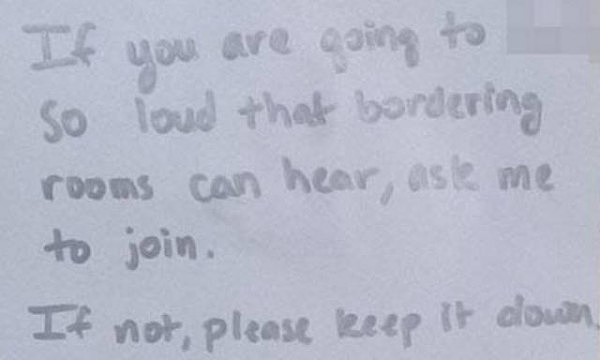 If you are going to
so loud that bordering
rooms can hear, ask me
to join.
If not, please keep it down.